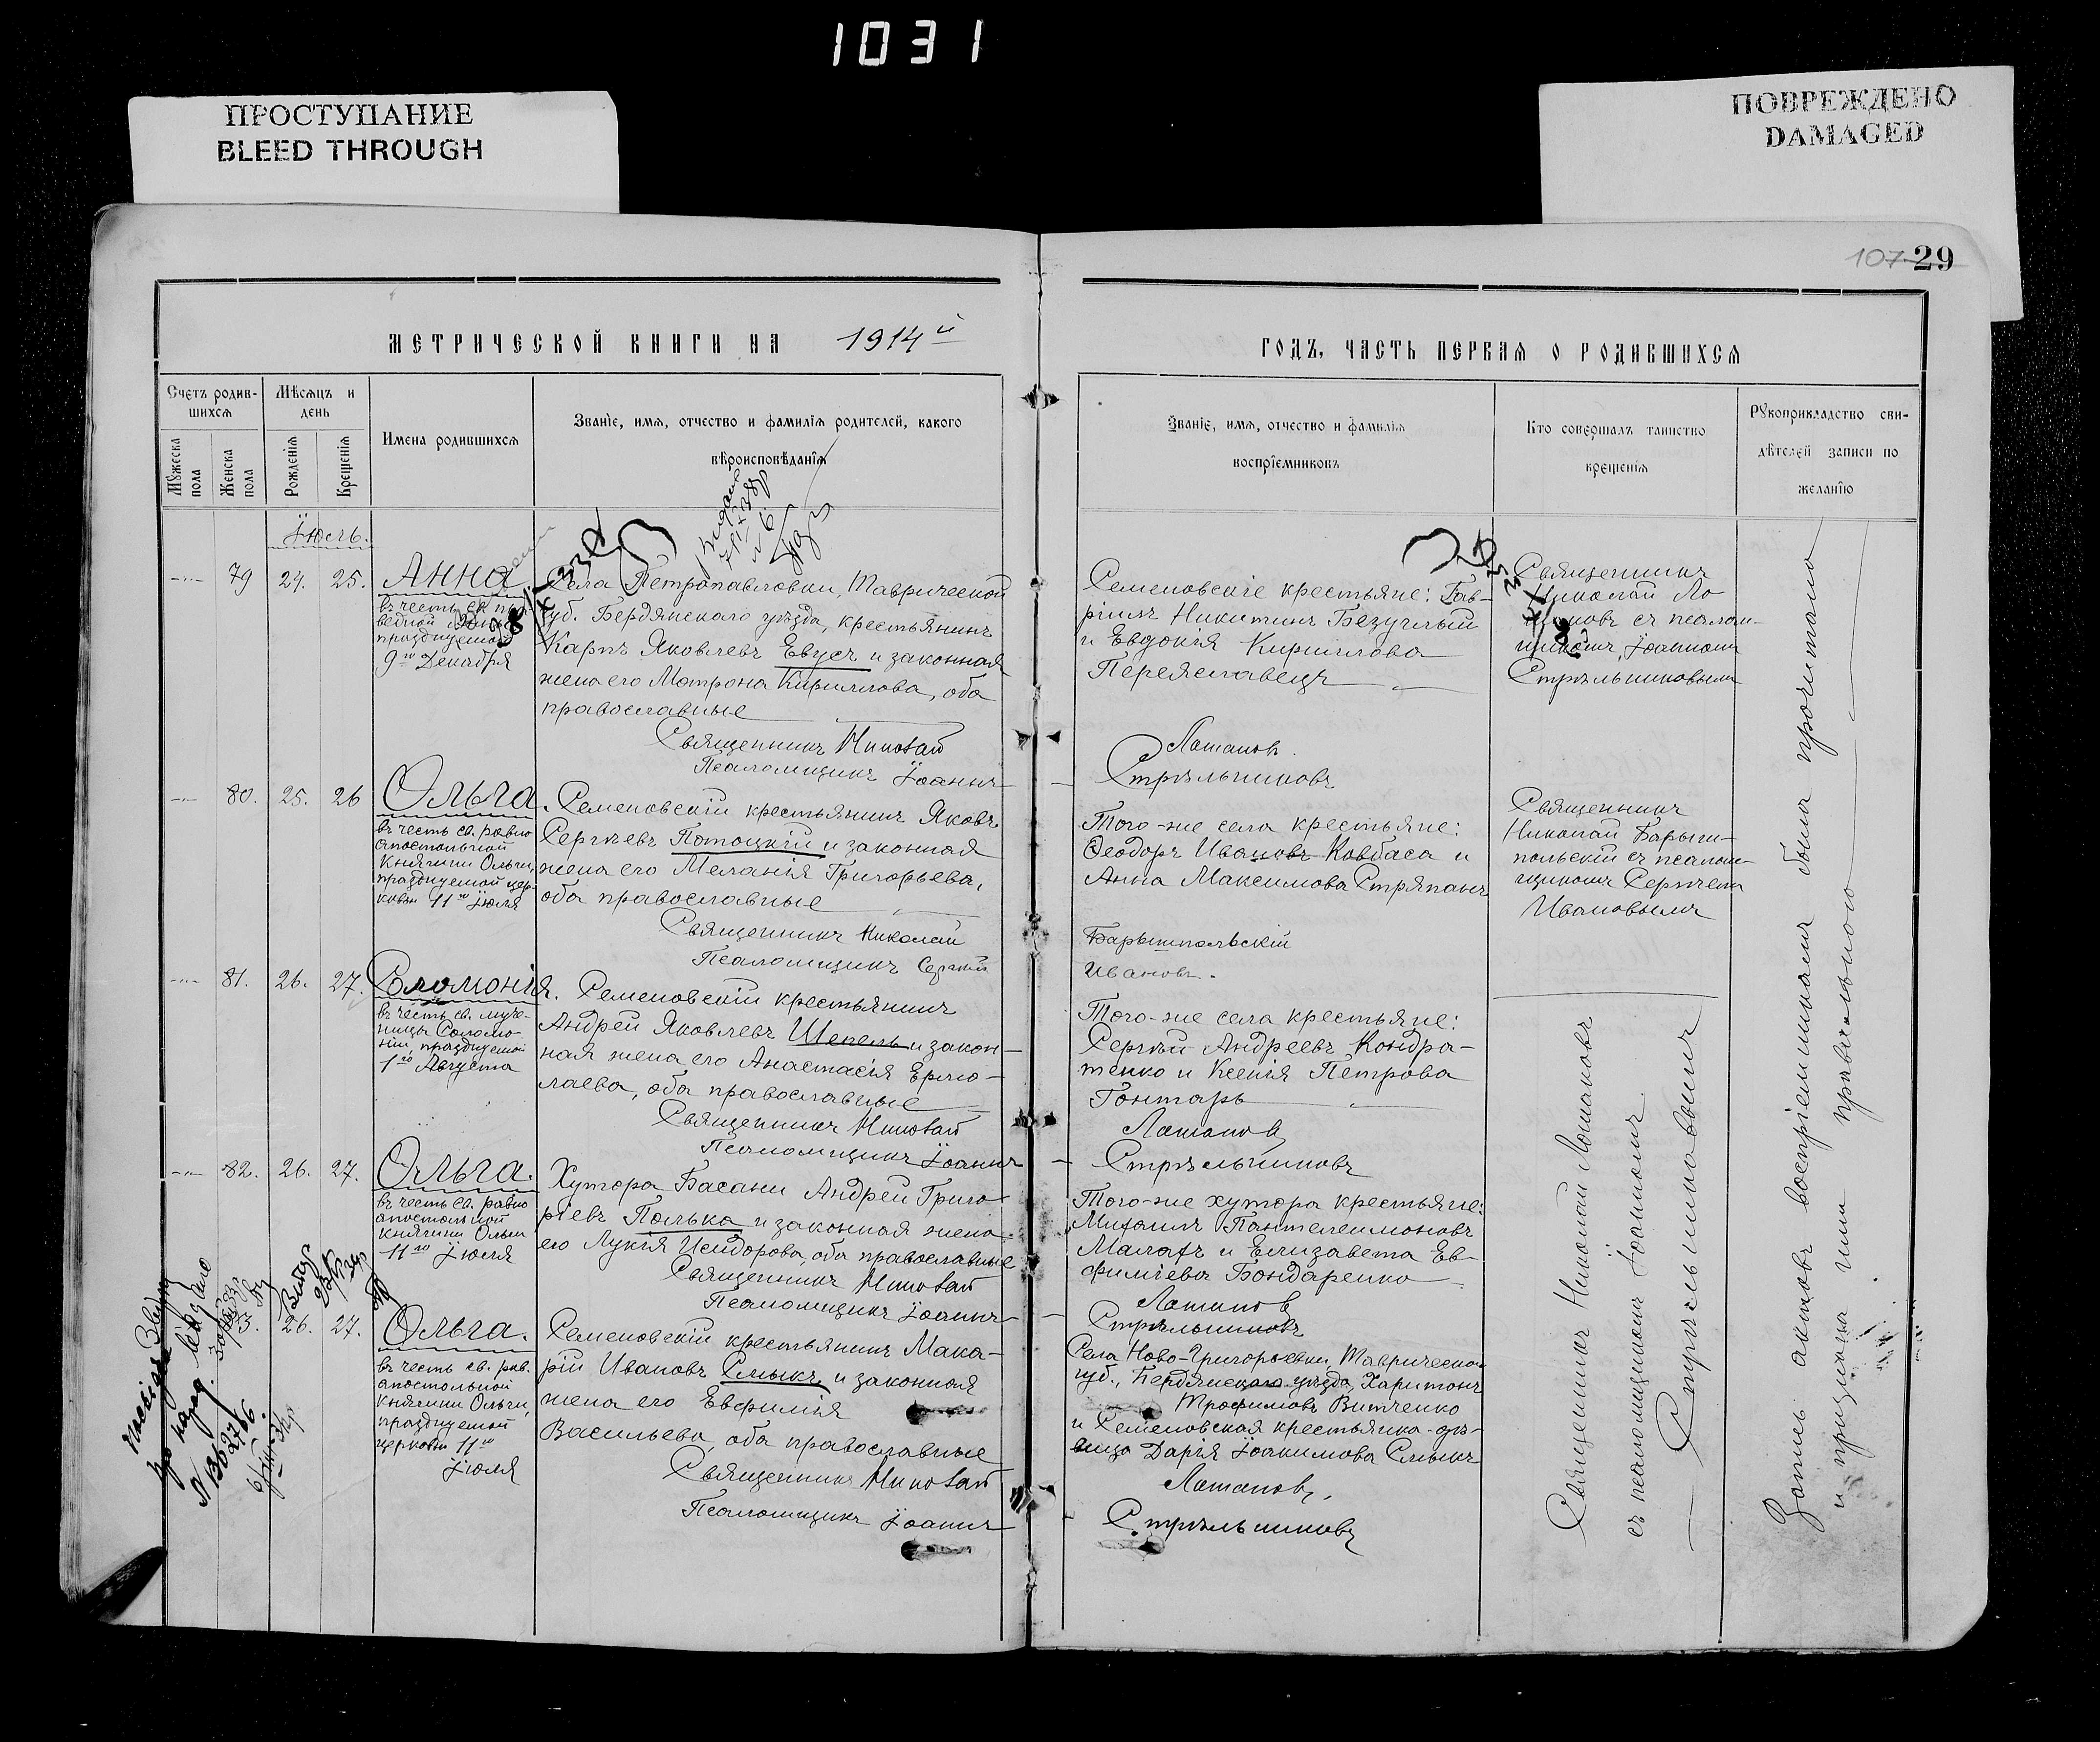 1031
ПРОСТУПАНИЕ
BLEED THROUGH
ПОВРЕЖДЕНО
DAMAGED
107 29
МЕТРИЧЕСКОЙ КНИГИ НА 1914й
ГОДЪ, ЧАСТЬ ПЕРВАЯ О РОДИВШИХСЯ
Счетъ родив-
шихся
Мѣсяцъ и
день
Имена родившихся
Званіе, имя, отчество и фамилія родителей, какого
вѣроисповѣданія
Мужеска
пола
Женска
пола
Рожденія
Крещенія
Званіе, имя, отчество и фамилія
воспріемниковъ
Кто совершалъ таинство
крещенія
Рукоприкладство сви-
дѣтелей записи по
желанію
Іюль.
79 24. 25. Анна
въ честь св. пра-
ведной Анны
празднуемой
9го Декабря
Села Петропавловки, Таврической
губ. Бердянскаго уѣзда, крестьянинъ
Карпъ Яковлевъ Евусъ и законная
жена его Матрона Кириллова, оба
православные
Священникъ Николай
Псаломщикъ Іоаннъ
Семеновскіе крестьяне: Гав-
ріилъ Никитинъ Безуглый
и Евдокія Кириллова
Переяславецъ
Лошаковъ
Стрѣльниковъ
Священникъ
Николай Ло
шаковъ съ псалом-
щикомъ Іоанномъ
Стрѣльниковымъ
80. 25. 26 Ольга.
въ честь св. равно
апостольной
Княгини Ольги,
празднуемой цер-
ковью 11го Іюля
Семеновскій крестьянинъ Яковъ
Сергѣевъ Потоцкій и законная
жена его Меланія Григорьева,
оба православные
Священникъ Николай
Псаломщикъ Сергѣй
Того-же села крестьяне:
Ѳеодоръ Ивановъ Ковбаса и
Анна Максимова Стряпанъ
Барышпольскій
Ивановъ.
Священникъ
Николай Барыш-
польскій съ псалом-
щикомъ Сергѣемъ
Ивановымъ
81. 26. 27. Соломонія.
въ честь св. муче-
ницы Соломо-
ніи, празднуемой
1го Августа
Семеновскій крестьянинъ
Андрей Яковлевъ Шепель и закон-
ная жена его Анастасія Ермо-
лаева, оба православные
Священникъ Николай
Псаломщикъ Іоаннъ
Того-же села крестьяне:
Сергѣй Андреевъ Кондра-
тенко и Ксенія Петрова
Гонтарь
Лошаковъ
Стрѣльниковъ
82. 26. 27. Ольга.
въ честь св. равно
апостольной
княгини Ольги
11го Іюля
Хутора Басани Андрей Григо-
ріевъ Полька и законная жена
его Лукія Исидорова, оба православные
Священникъ Николай
Псаломщикъ Іоаннъ
Того-же хутора крестьяне:
Михаилъ Пантелеимоновъ
Малахъ и Елизавета Ев-
фиміева Бондаренко
Лошаковъ
Стрѣльниковъ
26. 27. Ольга.
въ честь св. рав.
апостольной
княгини Ольги,
празднуемой
церковью 11го
Іюля
Семеновскій крестьянинъ Мака-
рій Ивановъ Смыкъ и законная
жена его Евфимія
Васильева, оба православные
Священникъ Николай
Псаломщикъ Іоаннъ
Села Ново-Григорьевки, Таврической
губ., Бердянскаго уѣзда, Харитонъ
Трофимовъ Витченко
и Семеновская крестьянка-дѣ-
вица Дарія Іоакимова Смыкъ
Лошаковъ,
Стрѣльниковъ
Священникъ Николай Лошаковъ
съ псаломщикомъ Іоанномъ
Стрѣльниковымъ
Запись актовъ воспріемникамъ была прочитана
и признана ими правильною